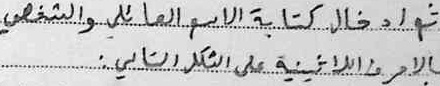 تم ادخال كتابة الاسم العائلي والشخصي
بالاحرف اللاتينية على الشكل التالي :